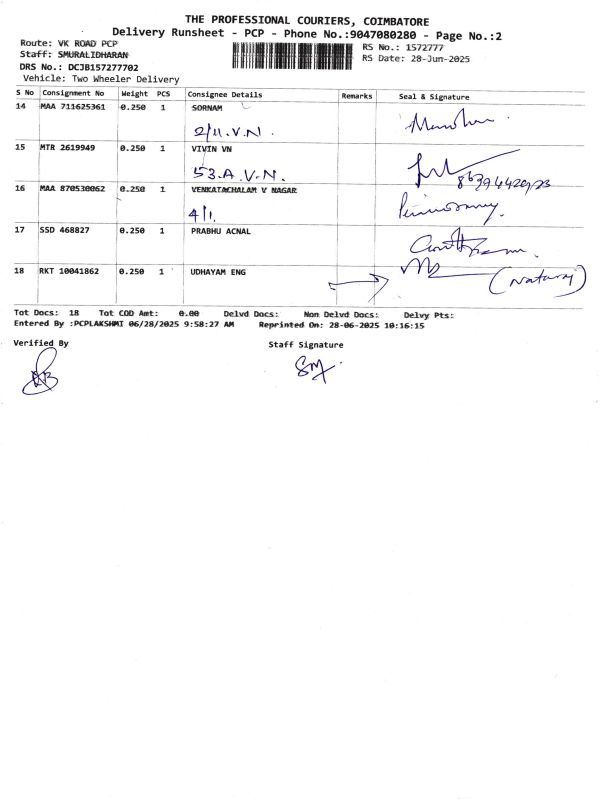 THE PROFESSIONAL COURIERS, COIMBATORE
Delivery Runsheet - PCP - Phone No.:9047080280 - Page No.:2
Route: VK ROAD PCP
Staff: SMURALIDHARAN
DRS No.: DCJB157277702
Vehicle: Two Wheeler Delivery
RS No.: 1572777
RS Date: 28-Jun-2025
S No Consignment No Weight PCS Consignee Details Remarks Seal & Signature
14 MAA 711625361 0.250 1 SORNAM
2/11.V.N.
15 MTR 2619949 0.250 1 VIVIN VN
53.A.V.N.
16 MAA 870530062 0.250 1 VENKATACHALAM V NAGAR
4/1.
17 SSD 468827 0.250 1 PRABHU ACNAL
18 RKT 10041862 0.250 1 UDHAYAM ENG (Nataraj)
Tot Docs: 18 Tot COD Amt: 0.00 Delvd Docs: Non Delvd Docs: Delvy Pts:
Entered By :PCPLAKSHMI 06/28/2025 9:58:27 AM Reprinted On: 28-06-2025 10:16:15
Verified By Staff Signature